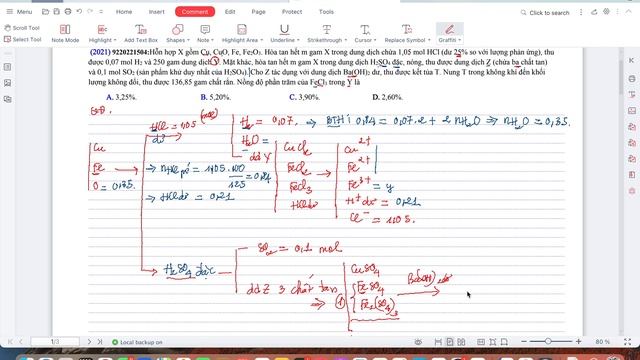 Menu
Home
Insert
Comment
Edit
Page
Protect
Tools
Scroll Tool
Screenshot
Note
Highlight
Highlight Area
Underline
Strikethrough
Cursor
Textbox
Callout
Graffiti
Stamp
(2021) 9220221504: Hỗn hợp X gồm Cu, CuO, Fe, Fe₂O₃. Hòa tan hết m gam X trong dung dịch chứa 1,05 mol HCl (dư 25% so với lượng phản ứng), thu
được 0,07 mol H₂ và 250 gam dung dịch Y. Mặt khác, hòa tan hết m gam X trong dung dịch H₂SO₄ đặc, nóng, thu được dung dịch Z (chứa ba chất tan)
và 0,1 mol SO₂ (sản phẩm khử duy nhất của H₂SO₄). Cho Z tác dụng với dung dịch Ba(OH)₂ dư, thu được kết tủa T. Nung T trong không khí đến khối
lượng không đổi, thu được 136,85 gam chất rắn. Nồng độ phần trăm của FeCl₃ trong Y là
A. 3,25%. B. 5,20%. C. 3,90%. D. 2,60%.
HCl = 1,05
dư
H₂ = 0,07. ⇒ BTH: 0,84 = 0,07.2 + 2 nH₂O ⇒ nH₂O = 0,35.
H₂O =
dd Y
Cu
Fe
O = 0,35.
⇒ nHCl pứ = 1,05.100/125 = 0,84
⇒ HCl dư = 0,21
CuCl₂
FeCl₂
FeCl₃
HCl dư
Cu²⁺
Fe²⁺
Fe³⁺ = y
H⁺ dư = 0,21
Cl⁻ = 1,05.
H₂SO₄ đặc
SO₂ = 0,1 mol
dd Z 3 chất tan
⇒ ①
CuSO₄
FeSO₄
Fe₂(SO₄)₃
Ba(OH)₂ dư
1/3
Local backup on
80 %